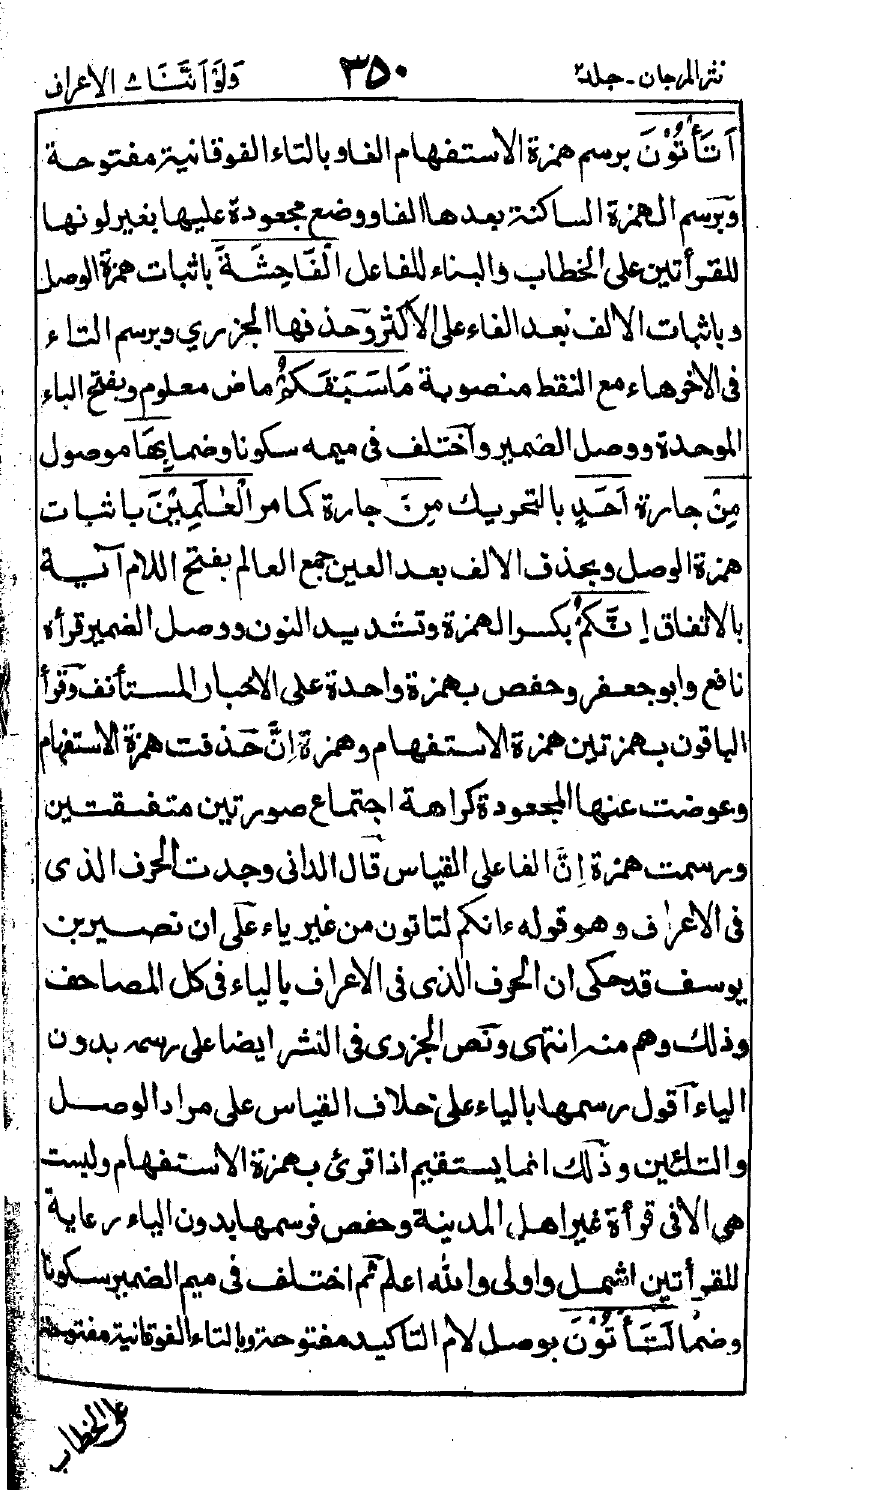 نثر المرجان - جلد ٢
٣٥٠
ولو اننا ٨ الاعراف
اَتَأْتُوْنَ برسم همزة الاستفهام الفا وبالتاء الفوقانية مفتوحة
وبرسم الهمزة الساكنة بعدها الفا ووضع مجعودة عليها بغير لونها
للقرأتين على الخطاب والبناء للفاعل الْفَاحِشَةَ باثبات همزة الوصل
وباثبات الالف بعد الفاء على الاكثر وحذفها الجزري وبرسم التاء
فى الاخر هاء مع النقط منصوبة مَاسَبَقَكُمْ ماض معلوم وبفتح الباء
الموحدة ووصل الضمير واختلف فى ميمه سكونا وضما بِهَا موصول
مِنْ جارة اَحَدٍ بالتحريك مِنَ جارة كما مر الْعٰلَمِيْنَ باثبات
همزة الوصل وبحذف الالف بعد العين جمع العالم بفتح اللام آية
بالاتفاق اِنَّكُمْ بكسر الهمزة وتشديد النون ووصل الضمير قرأه
نافع وابوجعفر وحفص بهمزة واحدة على الاخبار المستأنف وقرأ
الباقون بهمزتين همزة الاستفهام وهمزة اِنَّ حذفت همزة الاستفهام
وعوضت عنها المجعودة كراهة اجتماع صورتين متفقتين
ورسمت همزة اِنَّ الفا على القياس قال الدانى وجدت الحرف الذى
فى الاعراف وهو قوله ءانكم لتاتون من غير ياء على ان نصير بن
يوسف قد حكى ان الحرف الذى فى الاعراف بالياء فى كل المصاحف
وذلك وهم منه انتهى ونص الجزرى فى النشر ايضا على رسمه بدون
الياء اقول رسمها بالياء على خلاف القياس على مراد الوصل
والتلئين وذلك انما يستقيم اذا قرئ بهمزة الاستفهام وليست
هى الا فى قرأة غير اهل المدينة وحفص فرسمها بدون الياء رعاية
للقرأتين اشمل واولى والله اعلم ثم اختلف فى ميم الضمير سكونا
وضما لَتَأْتُوْنَ بوصل لام التاكيد مفتوحة وبالتاء الفوقانية مفتوحة
على الخطاب